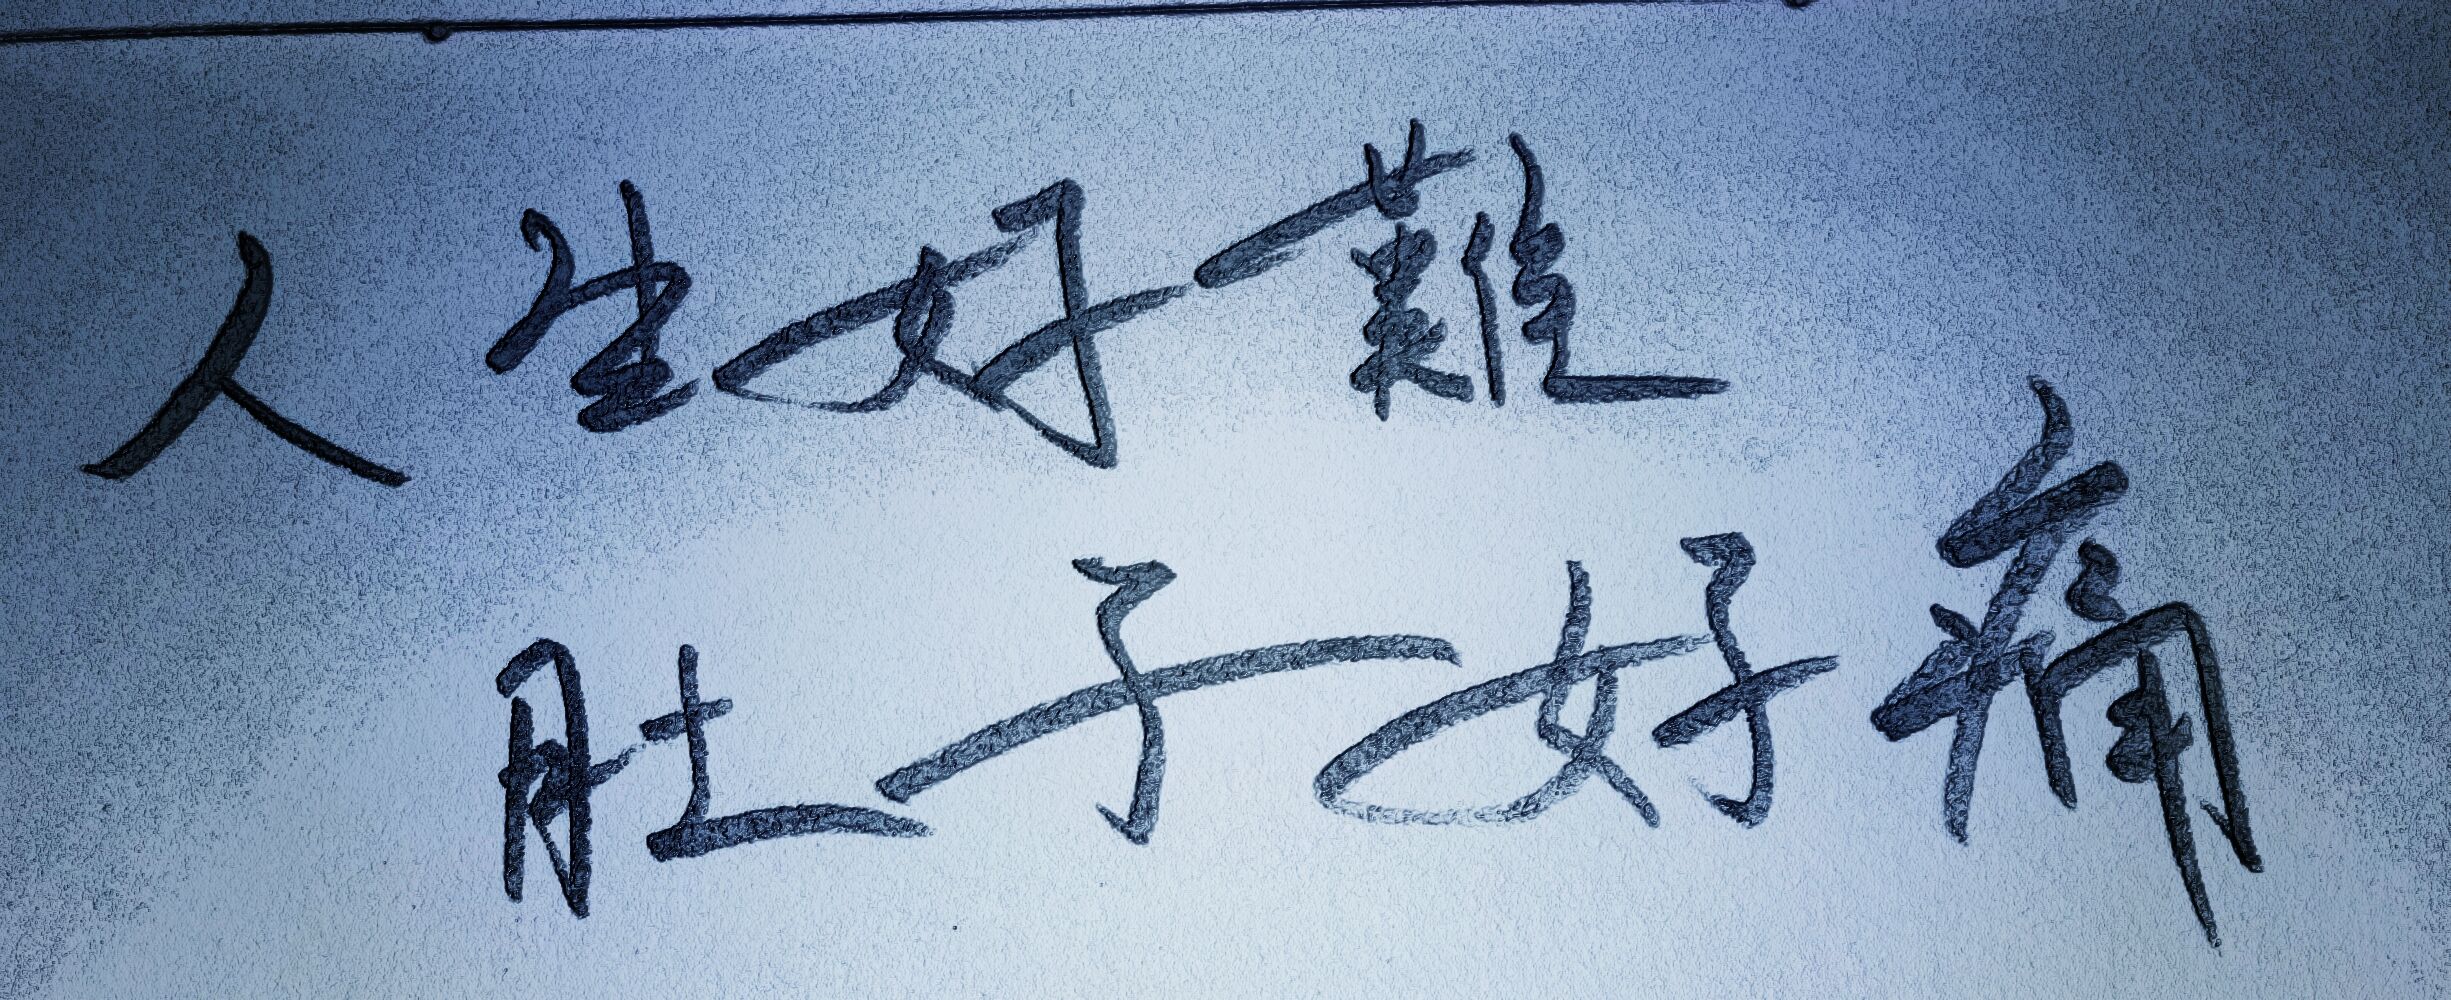 人生好難
肚子好痛